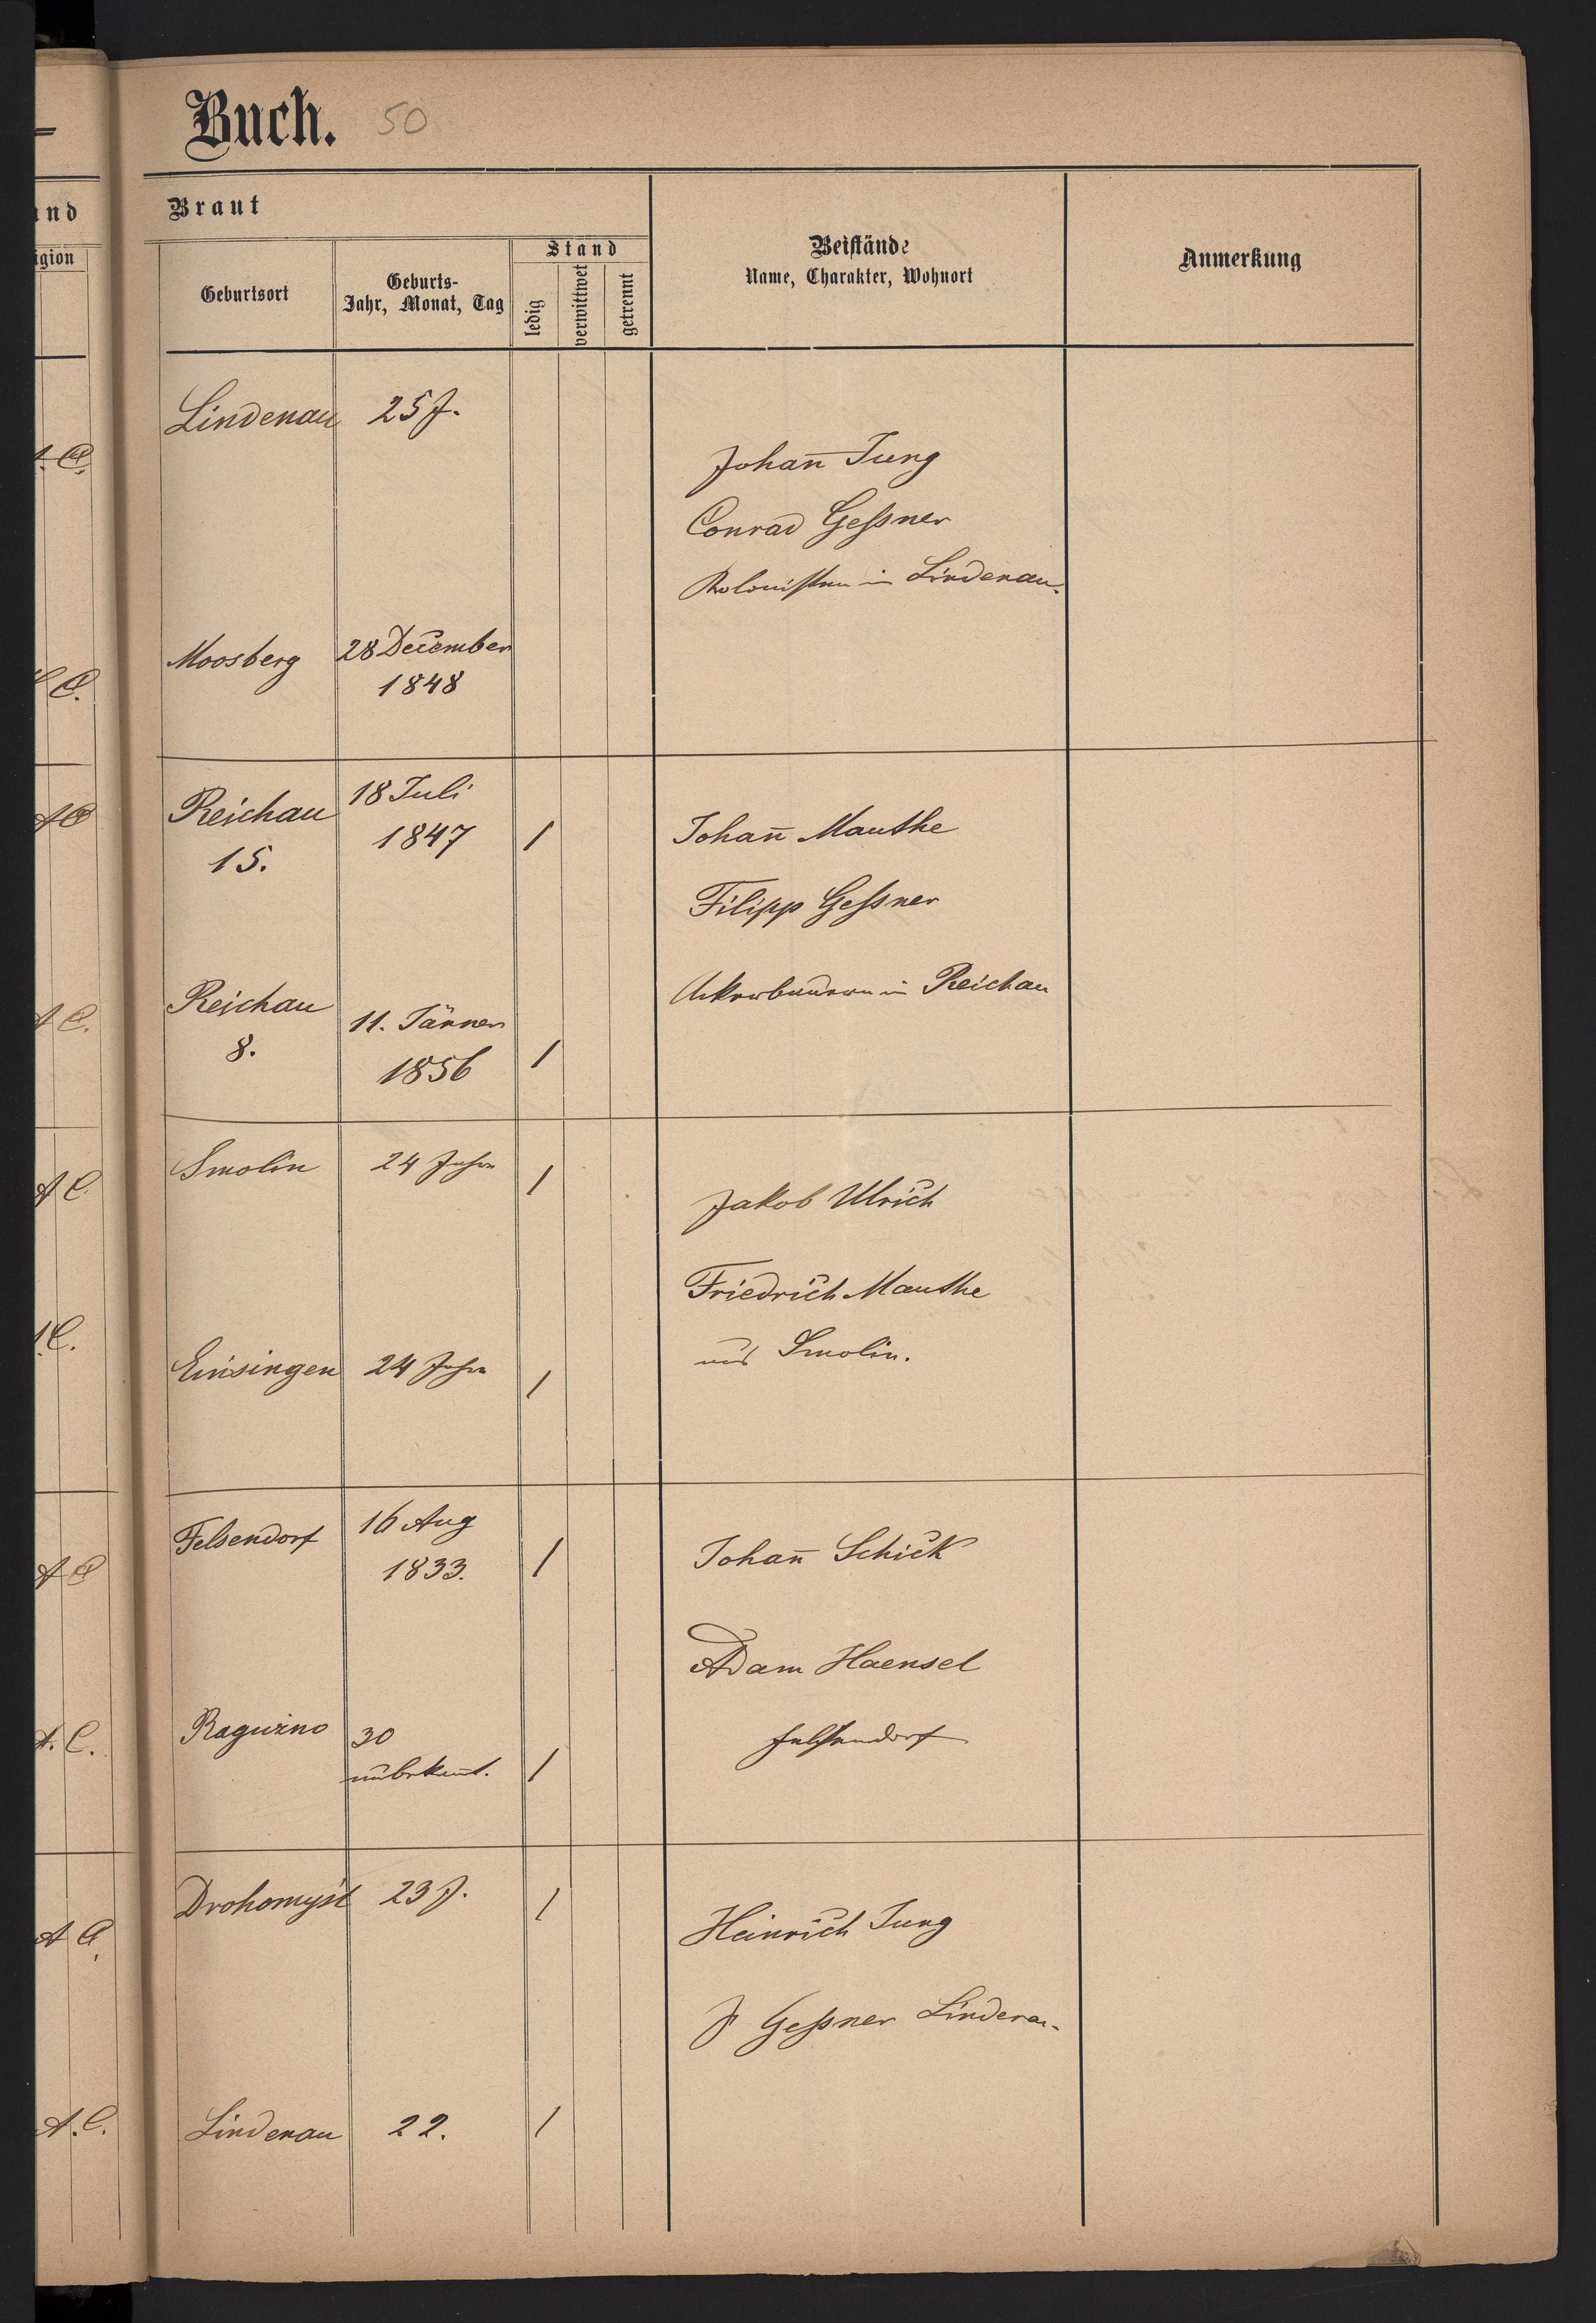 Buch. 50
Braut
Geburtsort
Geburts-
Jahr, Monat, Tag
Stand
ledig
verwittwet
getrennt
Beistände
Name, Charakter, Wohnort
Anmerkung
Lindenau 25 J.
Johan̄ Jung
Conrad Geßner
Kolonisten in Lindenau.
Moosberg 28 December
1848
Reichau 18 Juli
15. 1847 /
Johan̄ Manthe
Filipp Geßner
Ackerbauern in Reichau
Reichau 11. Jänner
8. 1856 /
Smolin 24 Jahre /
Jakob Ulrich
Friedrich Manthe
aus Smolin.
Einsingen 24 Jahre /
Felsendorf 16 Aug
1833. /
Johan̄ Schick
Adam Haensel
Felsendorf
30
unbekan̄t. /
Drohomyśl 23 J. /
Heinrich Jung
J Geßner
Lindenau 22. /
nd
igion
A. C.
A C.
A C
A C.
A C
A C.
A C
A. C.
A C.
A. C.